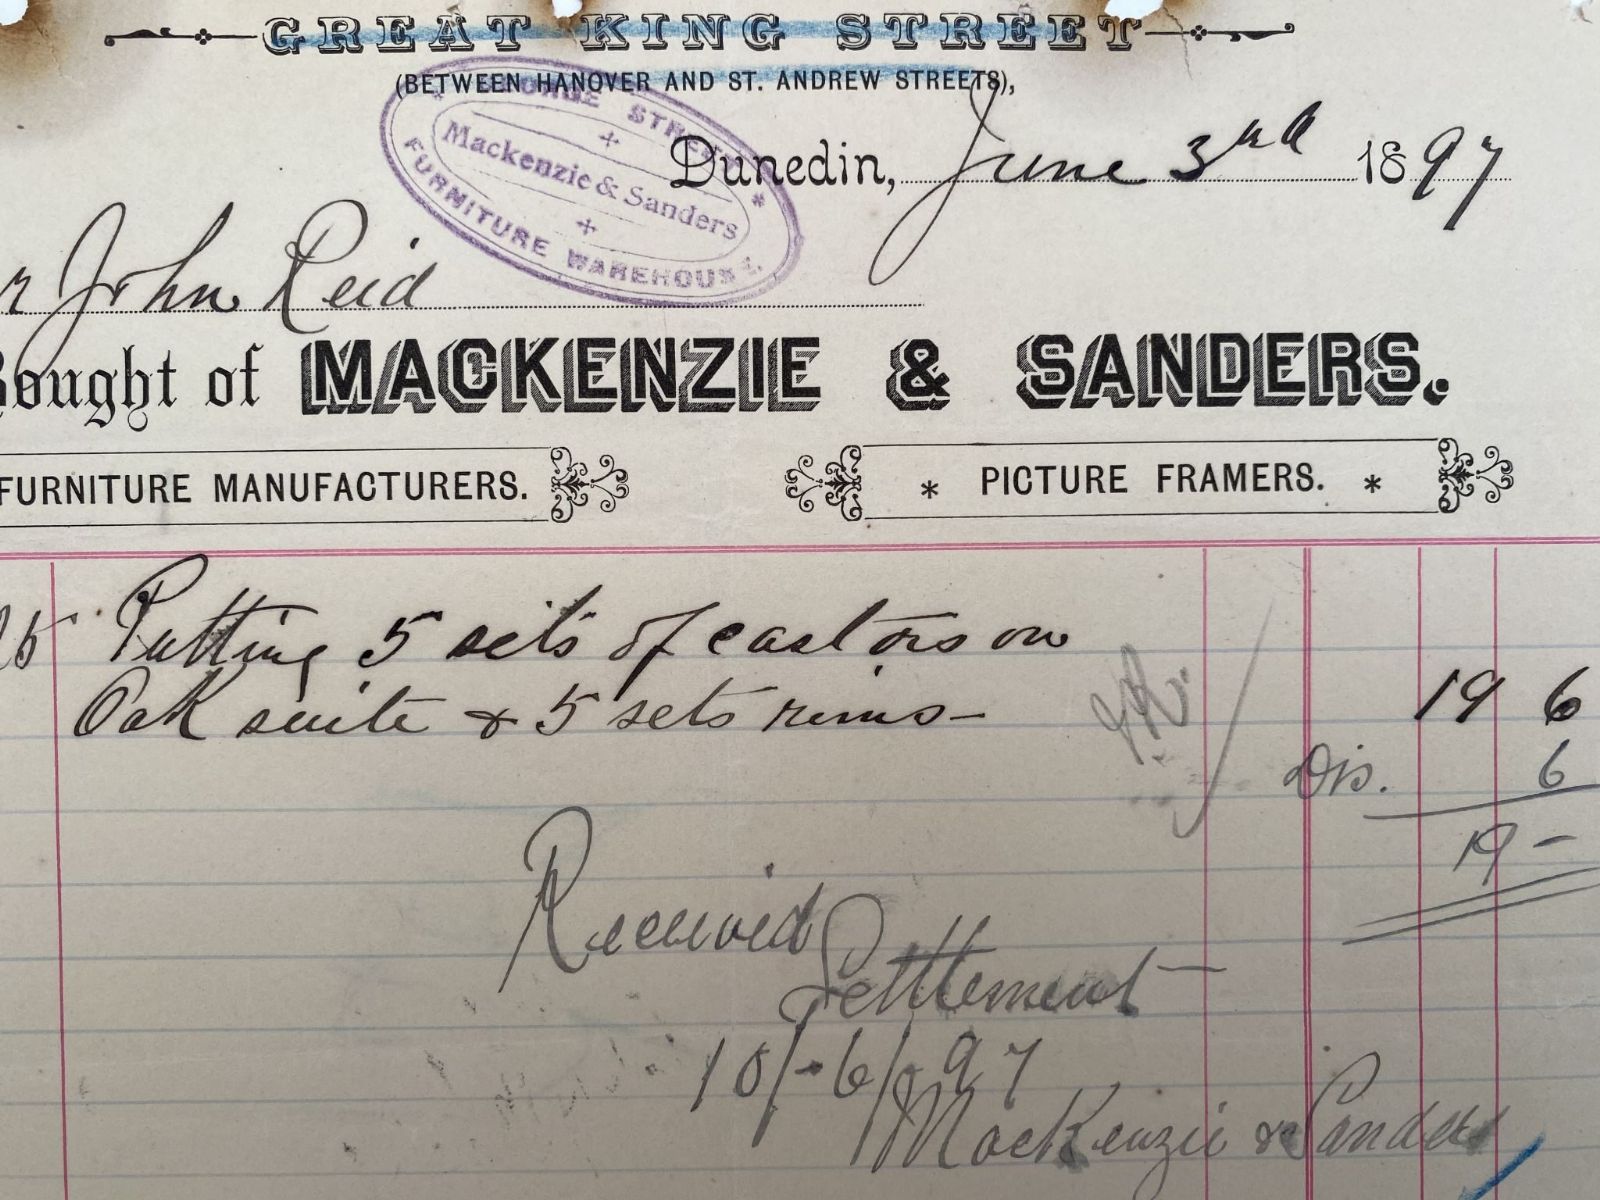 GREAT KING STREET
(BETWEEN HANOVER AND ST. ANDREW STREETS),
STREET
Mackenzie & Sanders
FURNITURE WAREHOUSE
Dunedin, June 3rd 1897
John Reid
Bought of MACKENZIE & SANDERS.
FURNITURE MANUFACTURERS. * PICTURE FRAMERS. *
Putting 5 sets of castors on
Oak suite & 5 sets rims— 19 6
Dis. 6
19 –
Received
Settlement—
10/-6/-97
MacKenzie & Sanders